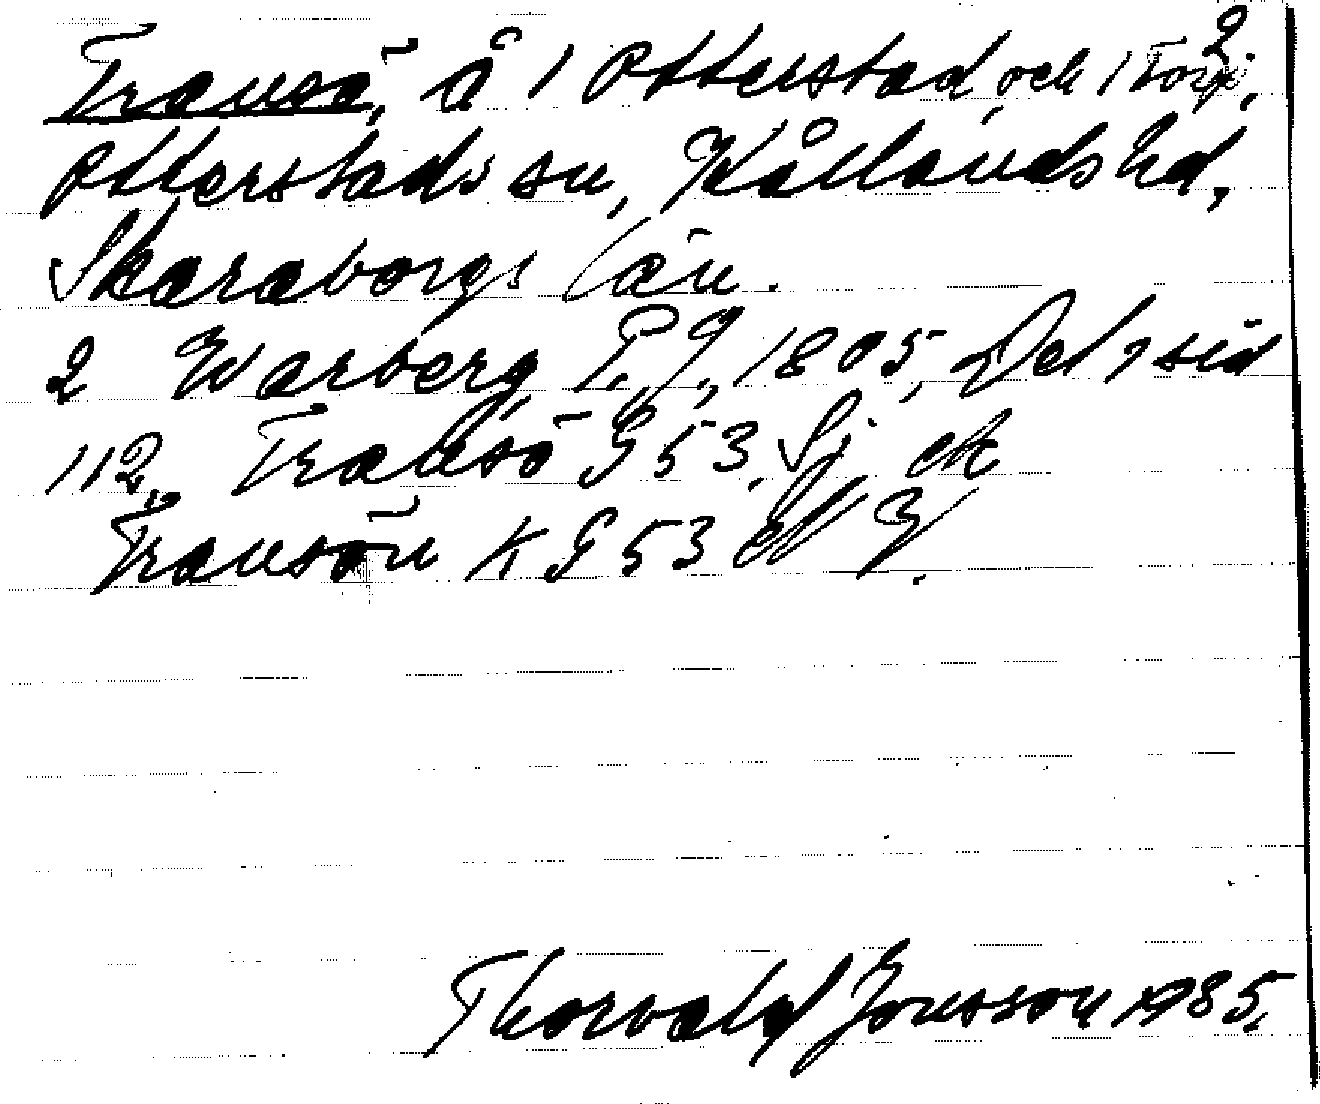 2.
Transö, Å i Otterstad, och i Torp,
Otterstads sn, Kållands hd,
Skaraborgs län.
2 Warberg, P. J., 1805, Del 1 sid
112, Transö G 53, Sj ek
Transön K G 53 ek
Thorvald Jonsson 1985.